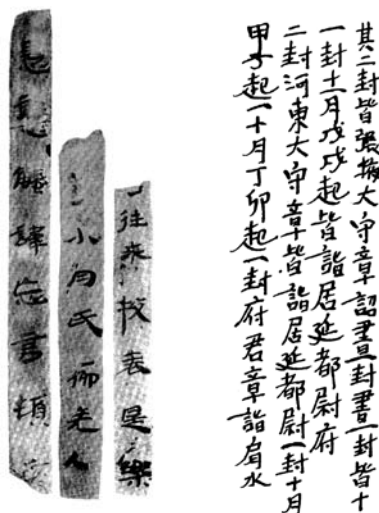 其二封皆張掖大守章詔書一封書一封皆十
一封十一月戊戌起皆詣居延都尉府
二封河東大守章皆詣居延都尉一封十月
甲子起一十月丁卯起一封府君章詣肩水
往來技表是樂
小月氏柳羌人
諱忘書